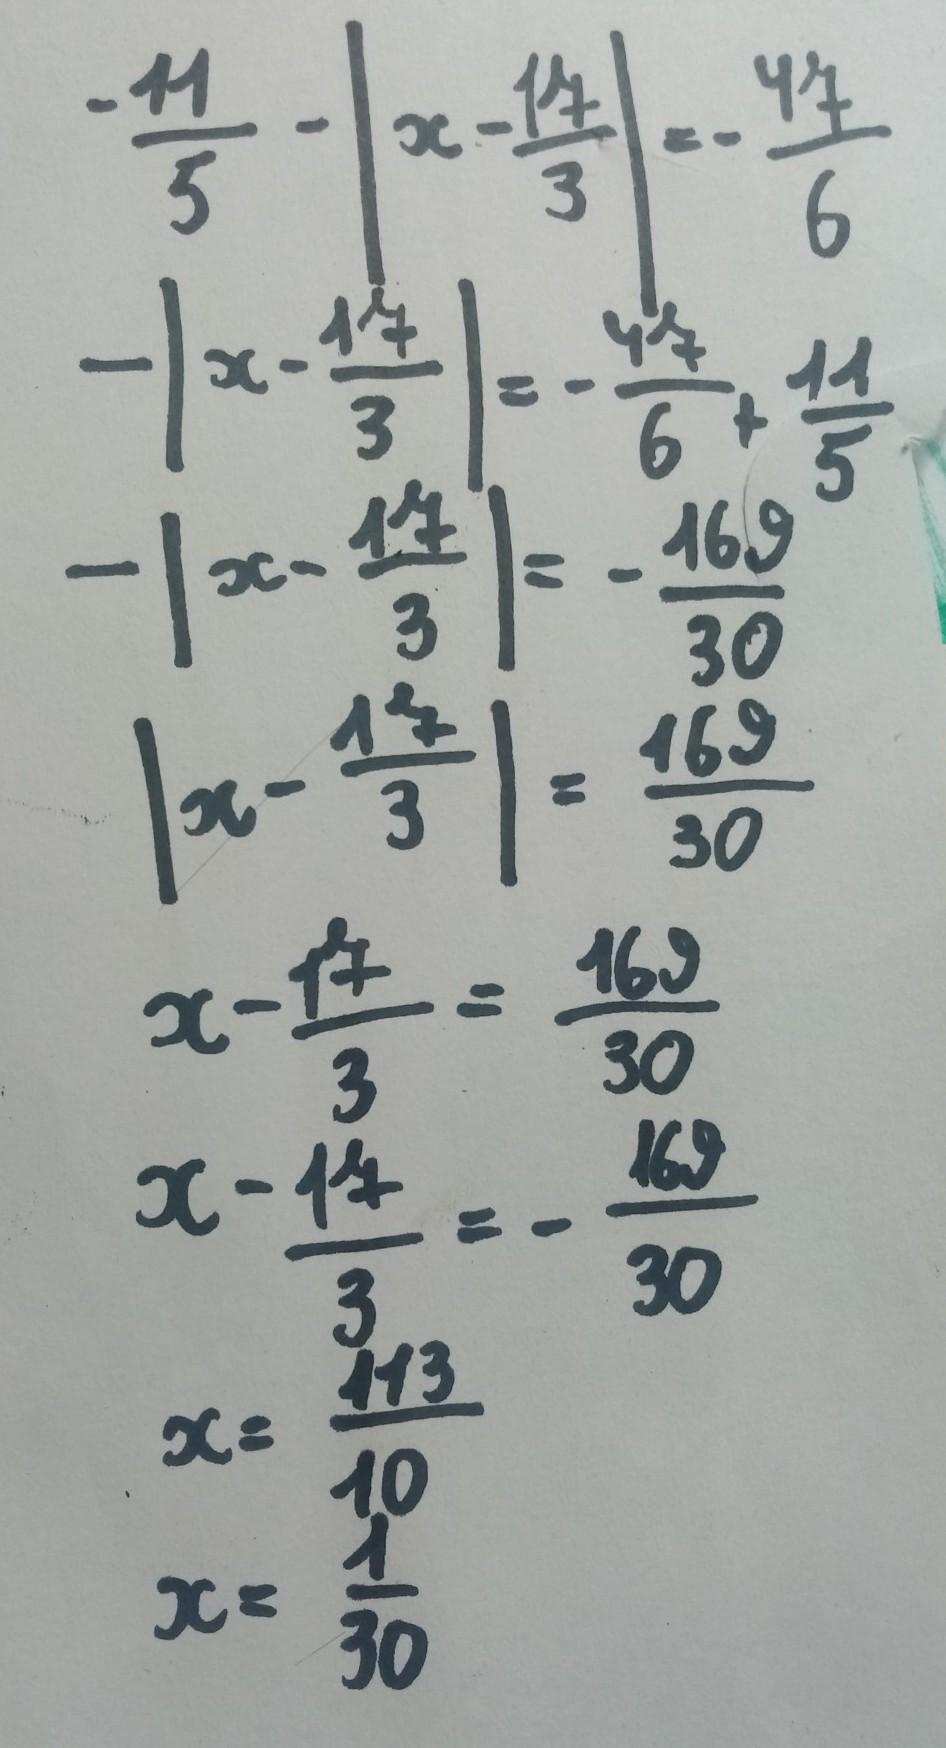 -11/5 - |x - 17/3| = - 47/6
-|x - 17/3| = - 47/6 + 11/5
-|x - 17/3| = - 169/30
|x - 17/3| = 169/30
x - 17/3 = 169/30
x - 17/3 = - 169/30
x = 113/10
x = 1/30